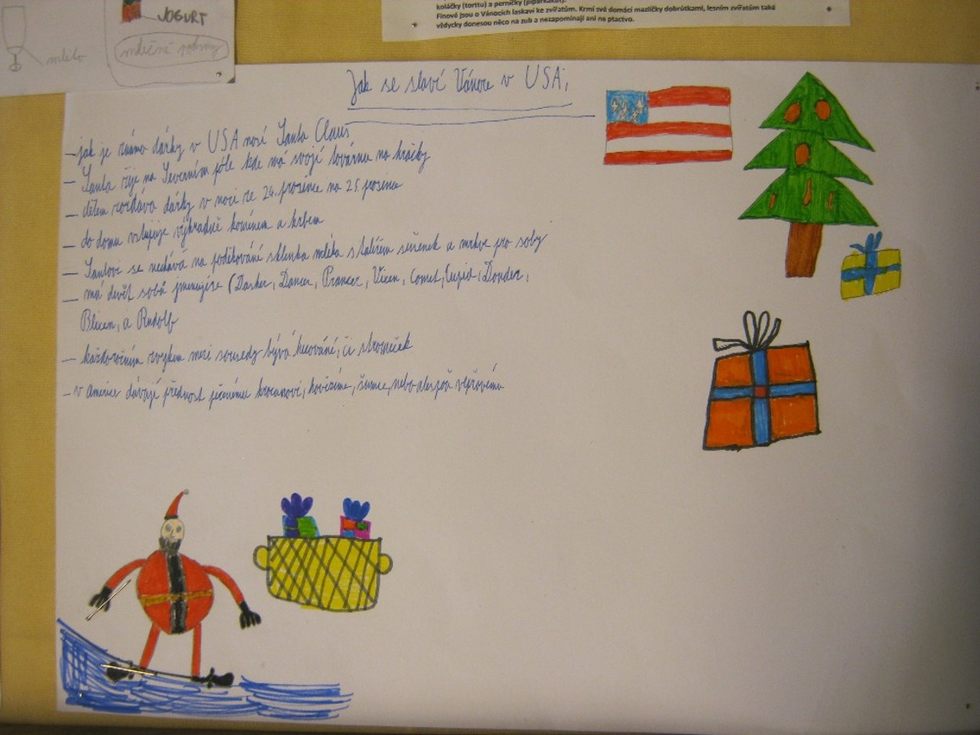 koláčky (torttu) a perníčky (piparkakut).
Finové jsou o Vánocích laskaví ke zvířatům. Krmí své domácí mazlíčky dobrůtkami, lesním zvířatům také
vždycky donesou něco na zub a nezapomínají ani na ptactvo.
JOGURT
mléko
mléčné
Jak se slaví Vánoce v USA
– jak je známo dárky v USA nosí Santa Claus
– Santa žije na Severním póle kde má svojí továrnu na hračky
– dětem rozdává dárky v noci ze 24. prosince na 25. prosence
– do domu vstupuje výhradně komínem a krbem
– Santovi se nechává na poděkování sklenka mléka s talířem sušenek a mrkve pro soby
– má devět sobů jmenujíse (Dasher, Dancer, Prancer, Vixen, Comet, Cupid, Donder,
Blixen, a Rudolf
– každoročním zvykem mezi sousedy bývá koledování, či stromeček
– v Americe dávají přednost pečenému krocanovi, hovězíme, šunce, nebo alespoň vepřovému